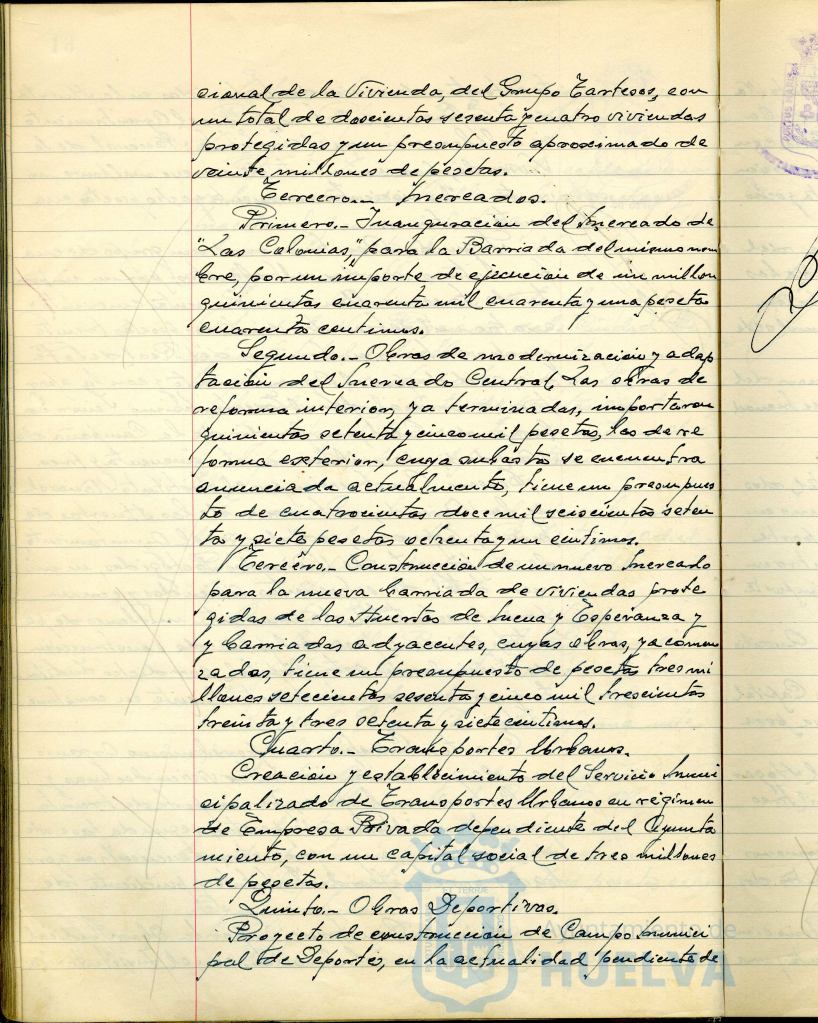 cional de la Vivienda, del Grupo Tartesos, con
un total de doscientas sesenta y cuatro viviendas
protegidas y un presupuesto aproximado de
veinte millones de pesetas.
Tercero.- Mercados.
Primero.- Inauguración del Mercado de
"Las Colonias", para la Barriada del mismo nom
bre, por un importe de ejecución de un millon
quinientas cuarenta mil cuarenta y una pesetas
cuarenta centimos.
Segundo.- Obras de modernización y adap
tación del Mercado Central, Las obras de
reforma interior, ya terminadas, importaron
quinientas setenta y cinco mil pesetas, las de re
forma exterior, cuya subasta se encuentra
anunciada actualmente, tiene un presupues
to de cuatrocientas doce mil seiscientas seten
ta y siete pesetas ochenta y un centimos.
Tercero.- Construcción de un nuevo Mercado
para la nueva barriada de viviendas prote
gidas de las Huertas de Mena y Esperanza y
y barriadas adyacentes, cuyas obras, ya comen
zadas, tiene un presupuesto de pesetas tres mi
llones setecientas sesenta y cinco mil trescientas
treinta y tres setenta y siete centimos.
Cuarto.- Transportes Urbanos.
Creación y establecimiento del Servicio Muni
cipalizado de Transportes Urbanos en régimen
de Empresa Privada dependiente del Ayunta
miento, con un capital social de tres millones
de pesetas.
Quinto.- Obras Deportivas.
Proyecto de construcción de Campo Munici
pal de Deportes, en la actualidad pendiente de
Ayuntamiento de
HUELVA